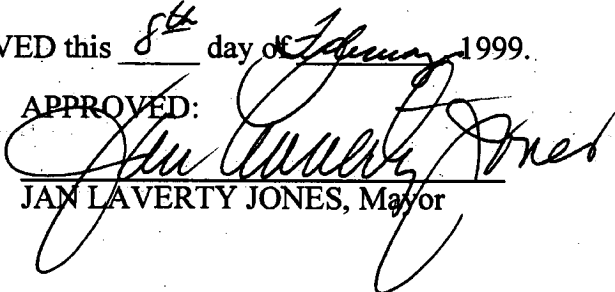 VED this 8th day of February 1999.
APPROVED:
Jan Laverty Jones
JAN LAVERTY JONES, Mayor